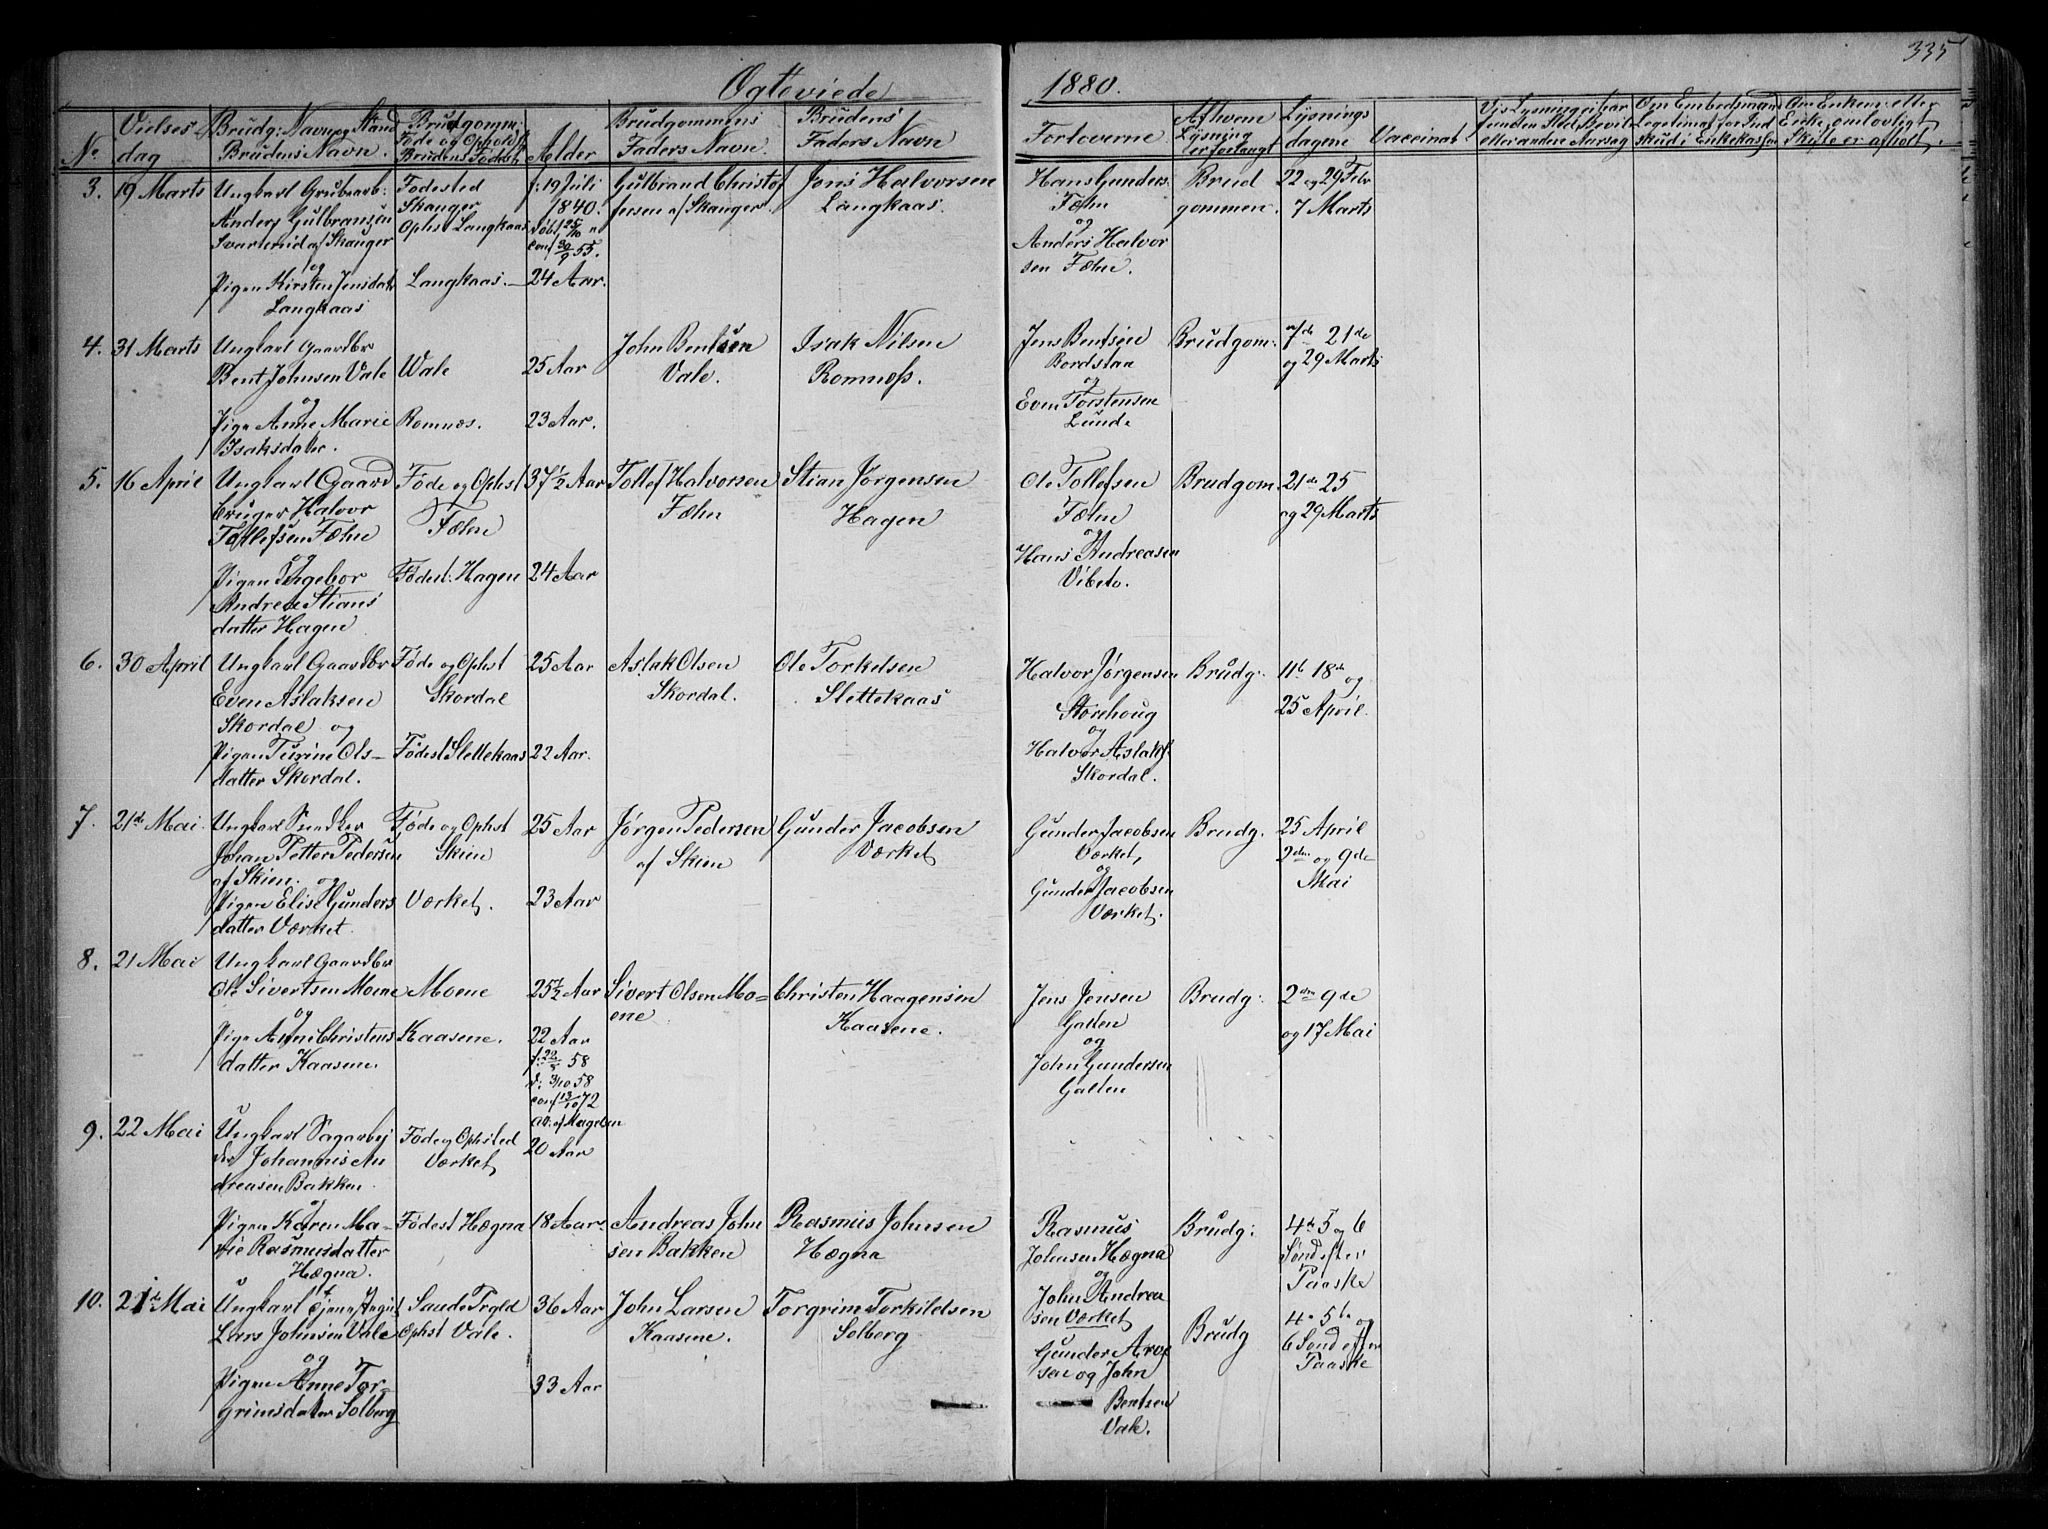 335
Ogteviede 1880.
No
Vielses dag
Brudg: Navn og Stand
Brudens Navn.
Brudgomm:
Føde og Opholdst
Brudens Fødest
Alder
Brudgommens
Faders Navn.
Brudens
Faders Navn
Forloverne
Af hvem
Lysning
er forlangt
Lysnings
dagene
Vaccinat
Om Embedsmand
Legitimat for Ind
skud i Enkekassen
Om Enkem: eller
Enke, om lovligt
Skifte er afholt.
3. 19 Marts
Ungkarl Grubearb:
Anders Gulbransen
Svartemid af Skauger
og
Pigen Kirsten Jensdatr
Langkaas
Fødested
Skauger
Ophst Langkaas
Langkaas.
f: 19 Juli
1840.
døbt 25/10 "
conf 30/9 55.
24 Aar.
Gulbrand Christof
fersen af Skauger.
Jens Halvorsen
Langkaas.
Hans Gunders.
Fæhn
og
Anders Halvor
sen Fæhn.
Brud
gommen.
22 og 29 Febr
7 Marts
4. 31 Marts
Ungkarl Gaardbr
Bent Johnsen Vale
og
Pige Anne Marie
Isaksdater.
Wale
Romnæs.
25 Aar
23 Aar.
John Bentsen
Vale.
Isak Nilsen
Romnæss.
Jens Bentsen
Bordstaa
og
Even Torstensen
Lunde
Brudgom:
7de 21de
og 29 Marts
5. 16 April
Ungkarl Gaard
bruger Halvor
Tollefsen Fæhn
og
Pigen Ingebor
Andrea Stians
datter Hagen
Føde og Ophst
Fæhn
Fødest: Hagen
37 1/2 Aar
24 Aar
Tollef Halvorsen
Fæhn
Stian Jørgensen
Hagen
Ole Tollefsen
Fæhn
og
Hans Andreasen
Vibeto.
Brudgom.
21de 25
og 29 Marts
6. 30 April
Ungkarl Gaardbr
Even Aslaksen
Skordal og
Pigen Turine Ols-
datter Skordal.
Føde og Ophst
Skordal
Fødest Slettekaas
25 Aar
22 Aar.
Aslak Olsen
Skordal.
Ole Torkelsen
Slettekaas
Halvor Jørgensen
Storehoug
og
Halvor Aslaks.
Skordal.
Brudg:
11te 18de og
25 April.
7. 21de Mai.
Ungkarl
Johan Petter Pedersen
af Skien. og
Pigen Elise Gunders
datter Værket.
Føde og Ophst
Skien
Værket.
25 Aar
23 Aar
Jørgen Pedersen
af Skien
Gunder Jacobsen
Værket
Gunder Jacobsen
Værket,
og
Gunder Jacobsen
Værket.
Brudg.
25 April
2den og 9de
Mai
8. 21 Mai
Ungkarl Gaardbr
Ole Sivertsen Moene
og
Pige Anne Christens
datter Kaasene.
Moene
Kaasene.
25 1/2 Aar
22 Aar
58
d: 3/10 58
conf 13/10 72
Sivert Olsen Mo=
ene
Christen Haagensen
Kaasene.
Jens Jensen
Galten
og
John Gundersen
Galten
Brudg:
2den 9de
og 17 Mai
9. 22 Mai
Ungkarl Sagarbej
der Johannis An
dreasen Bakken
og
Pigen Karen Ma-
rie Rasmusdatter
Hægna.
Føde og Ophsted
Værket
Fødest Hægna
20 Aar
18 Aar.
Andreas John
sen Bakken
Rasmus Johnsen
Hægna
Rasmus
Johnsen Hægna
og
John Andrea
sen Værket
Brudg:
4de 5 og 6
Sønd efter
Paaske
10. 21de Mai
Ungkarl
Lars Johnsen Vale
og
Pigen Anne Tor-
grimsdater Solberg
Saude Prgld
Ophst Vale.
36 Aar
33 Aar
John Larsen
Kaasene.
Torgrim Torkildsen
Solberg
Gunder
sen og John
Bentsen
Vale.
Brudg
4de 5te og
6 Sønd efter
Paaske